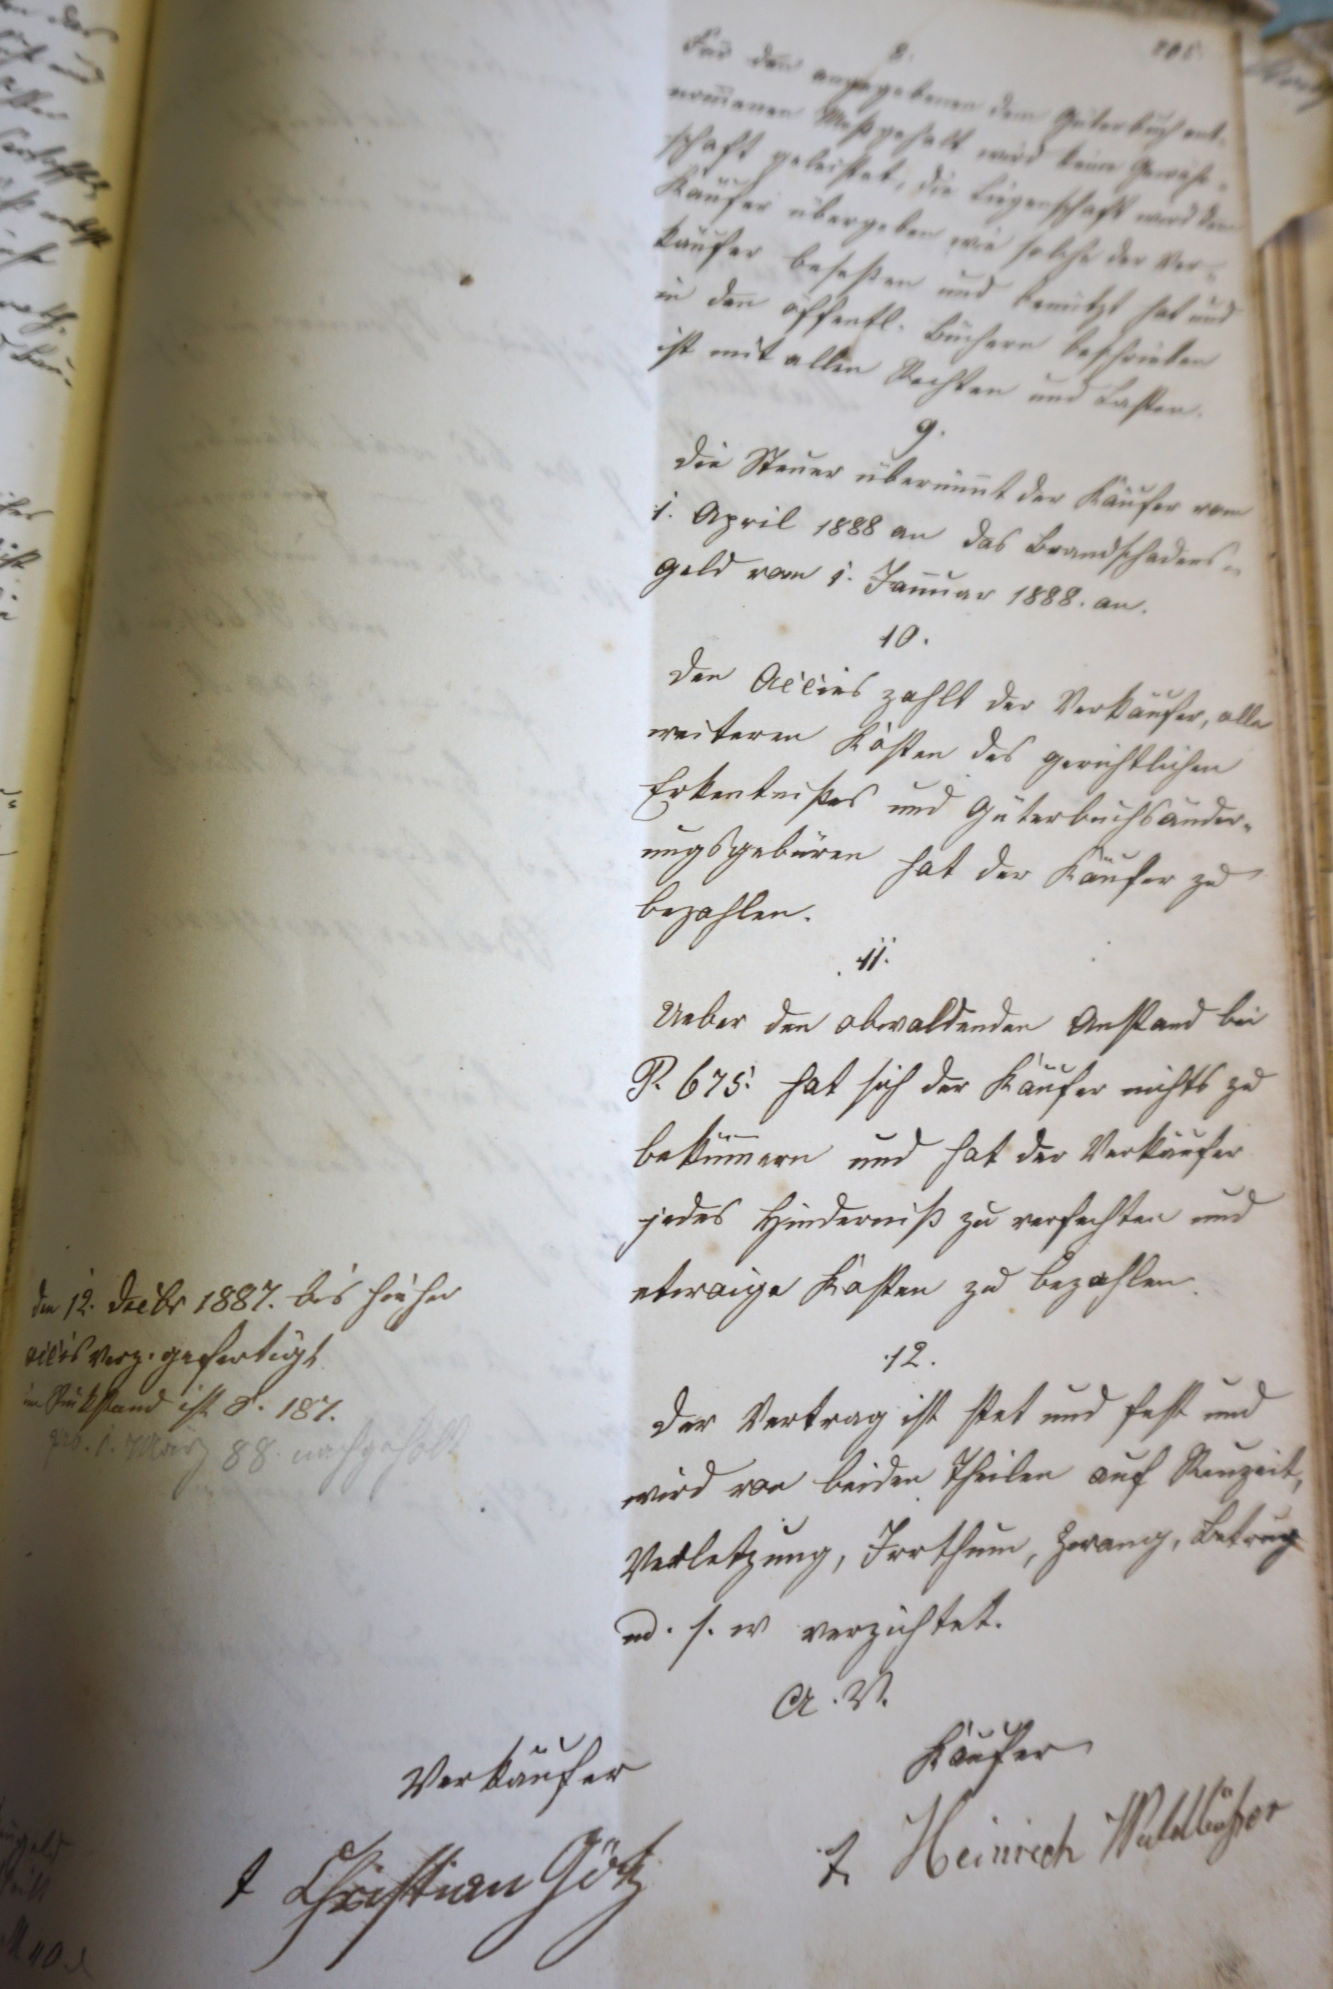 8.
Für den angegebenen dem Güterbuch ent-
nom̄enen Meßgehalt wird keine Gewähr-
schaft geleistet, die Liegenschaft wird dem
Käufer übergeben wie solche der Ver-
käufer beseßen und benützt hat und
in den öffentl. Büchern beschrieben
ist mit allen Rechten und Lasten.
9.
Die Steuer übernim̄t der Käufer vom
1. April 1888 an das Brandschadens-
geld vom 1. Januar 1888. an.
10.
Den Accis zahlt der Verkäufer, alle
weiteren Kosten des gerichtlichen
Erkentnißes und Güterbuchsänder-
ungsgebüren hat der Käufer zu
bezahlen.
11.
Ueber den obwaldenden Anstand bei
P. 675. hat sich der Käufer nichts zu
beküm̄ern und hat der Verkäufer
jedes Hinderniß zu verfechten und
etwaige Kosten zu bezahlen.
12.
Der Vertrag ist stet und fest und
wird von beiden Theilen auf Reuzeit,
Verletzung, Irrthum, Zwang, Betrug
u. s. w verzichtet.
A. V.
Verkäufer
Käufer
t Christian Götz
t. Heinrich Waldbüßer
den 12. Decbr 1887. bis hieher
accis Verz. gefertigt
im Rükstand ist S. 187.
pro. 1. März 88. nachgeholt